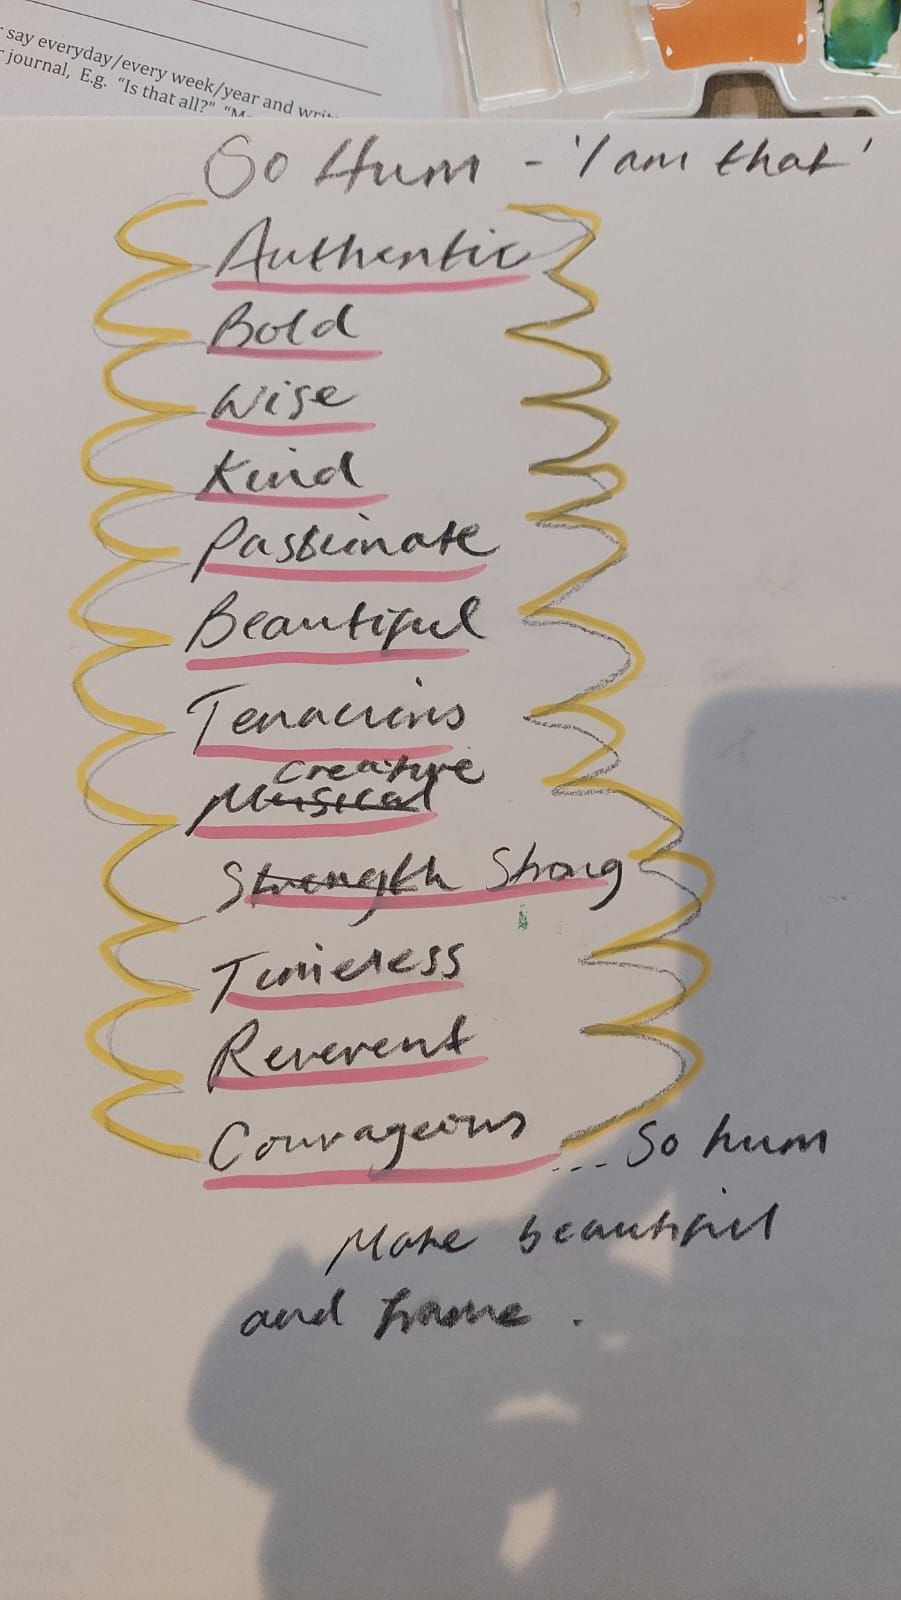 say everyday/every week/year and writ
journal, E.g. "Is that all?" "M
So Hum - 'I am that'
Authentic
Bold
Wise
Kind
Passionate
Beautiful
Tenacious
Creative
Musical
Strength Strong
Timeless
Reverent
Courageous
... So hum
Make beautiful
and frame.